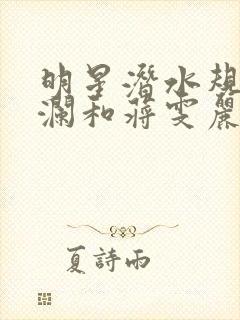 明星潛水規
瀾和蔣雯麗
夏詩雨